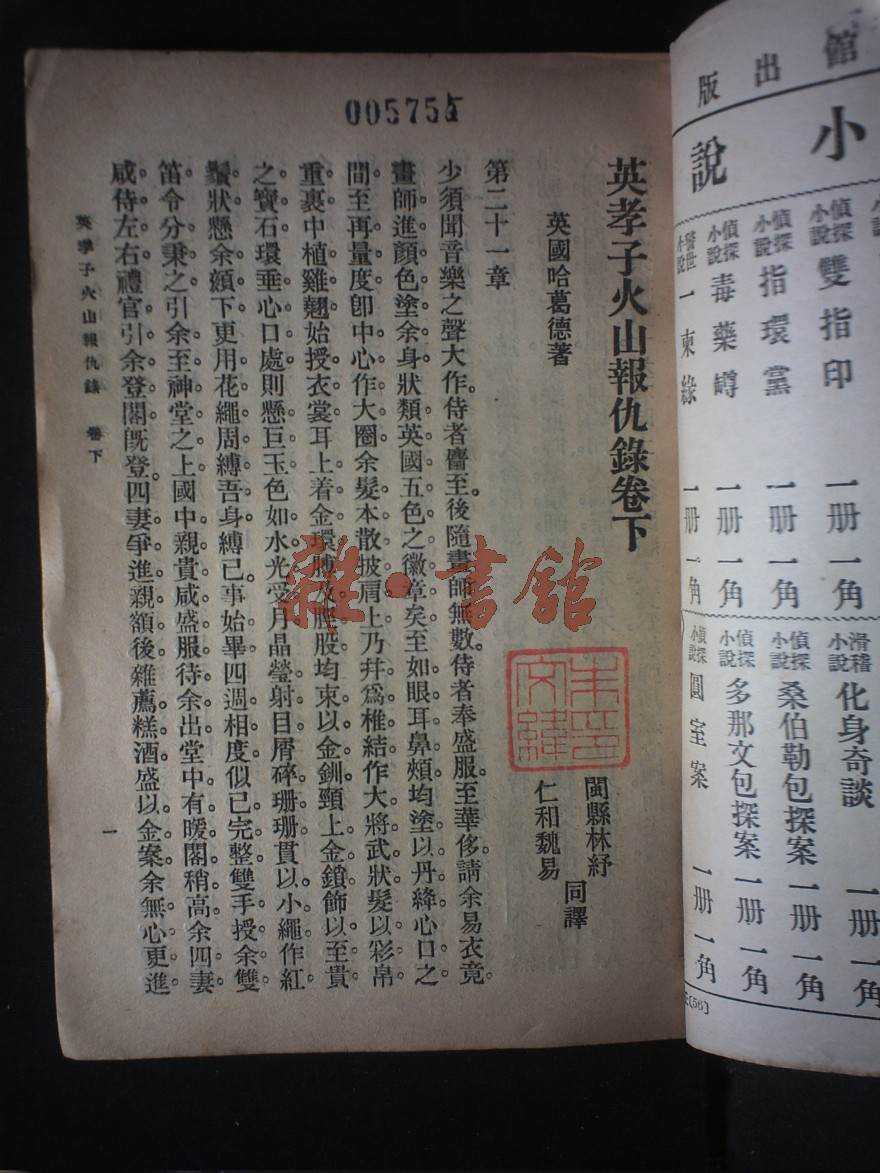 005755
英孝子火山報仇錄卷下
英國哈葛德著
閩縣林紓
仁和魏易
同譯
第二十一章
少須聞音樂之聲大作。侍者儕至。後隨畫師無數。侍者奉盛服。至華侈。請余易衣竟。
畫師進顏色塗余身。狀類英國五色之徽章矣。至如眼耳鼻頰。均塗以丹絳。心口之
間。至再量度。卽中心作大圈。余髮本散披肩上。乃幷爲椎結。作大將武狀。髮以彩帛
重裹。中植雞翹。始授衣裳。耳上着金環。膊及脛股均束以金釧。頸上金鎖。飾以至貴
之寶石環。垂心口處則懸巨玉。色如水光受月。晶瑩射目。屑碎珊珊。貫以小繩。作紅
鬚狀。懸余頷下。更用花繩周縛吾身。縛已。事始畢。四週相度。似已完整。雙手授余雙
笛。令分秉之。引余至神堂之上。國中親貴咸盛服待余出。堂中有暖閣稍高。余四妻
咸侍左右。禮官引余登閣。旣登。四妻爭進親額。後雜薦糕酒。盛以金案。余無心更進
英孝子火山報仇錄 卷下
一
雜·書館
館出版
小說
偵探小說 雙指印 一册 一角
偵探小說 指環黨 一册 一角
偵探小說 毒藥罇 一册 一角
警世小說 一柬緣 一册 一角
滑稽小說 化身奇談 一册 一角
偵探小說 桑伯勒包探案 一册 一角
偵探小說 多那文包探案 一册 一角
偵探小說 圓室案 一册 一角
(56)